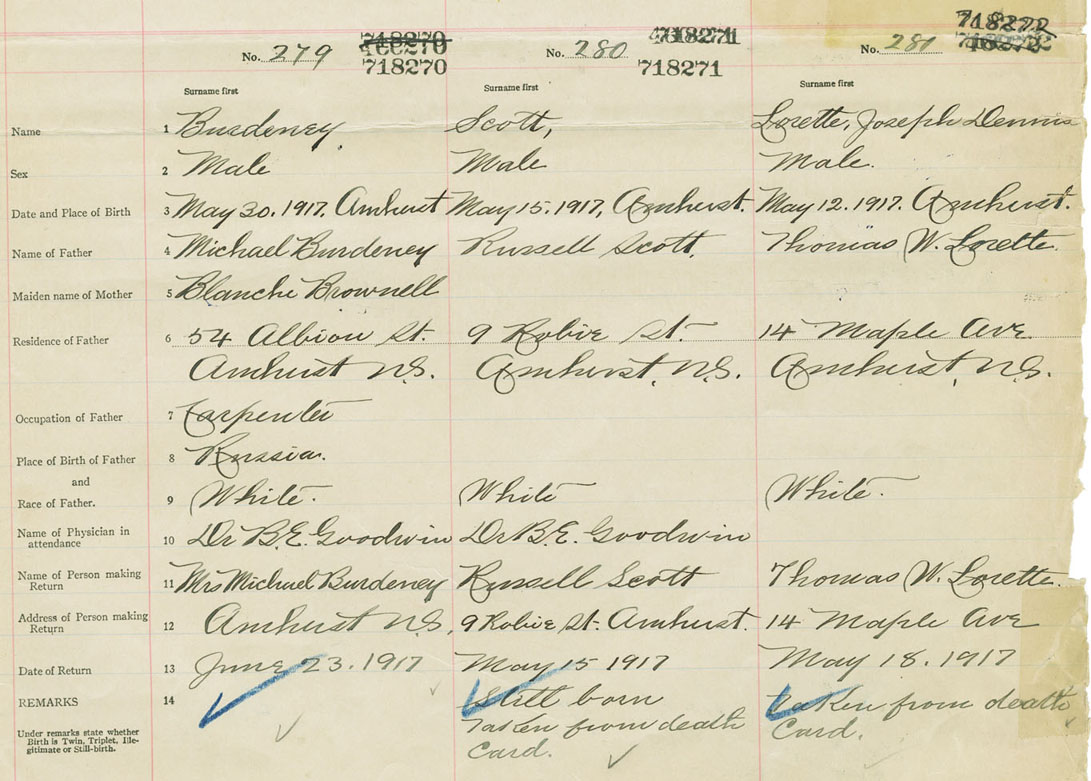 718270 718271 718272
No. 279 718270 No. 280 718271 No. 281 718272
Surname first Surname first Surname first
Name 1 Burdeney, Scott, Lorette, Joseph Dennis
Sex 2 Male Male Male.
Date and Place of Birth 3 May 30. 1917. Amherst May 15. 1917, Amherst. May 12. 1917. Amherst.
Name of Father 4 Michael Burdeney Russell Scott, Thomas W. Lorette.
Maiden name of Mother 5 Blanche Brownell
Residence of Father 6 54 Albion St. 9 Robie St. 14 Maple Ave
Amherst N.S. Amherst, N.S. Amherst, N.S.
Occupation of Father 7 Carpenter
Place of Birth of Father 8 Russia.
and
Race of Father. 9 White. White White.
Name of Physician in
attendance 10 Dr B.E. Goodwin Dr B.E. Goodwin
Name of Person making
Return 11 Mrs Michael Burdeney Russell Scott Thomas W. Lorette.
Address of Person making
Return 12 Amherst N.S, 9 Robie St. Amherst. 14 Maple Ave
Date of Return 13 June 23. 1917 May 15 1917 May 18. 1917
REMARKS 14 Still born Taken from death
Under remarks state whether Taken from death Card.
Birth is Twin, Triplet, Ille- Card.
gitimate or Still-birth.